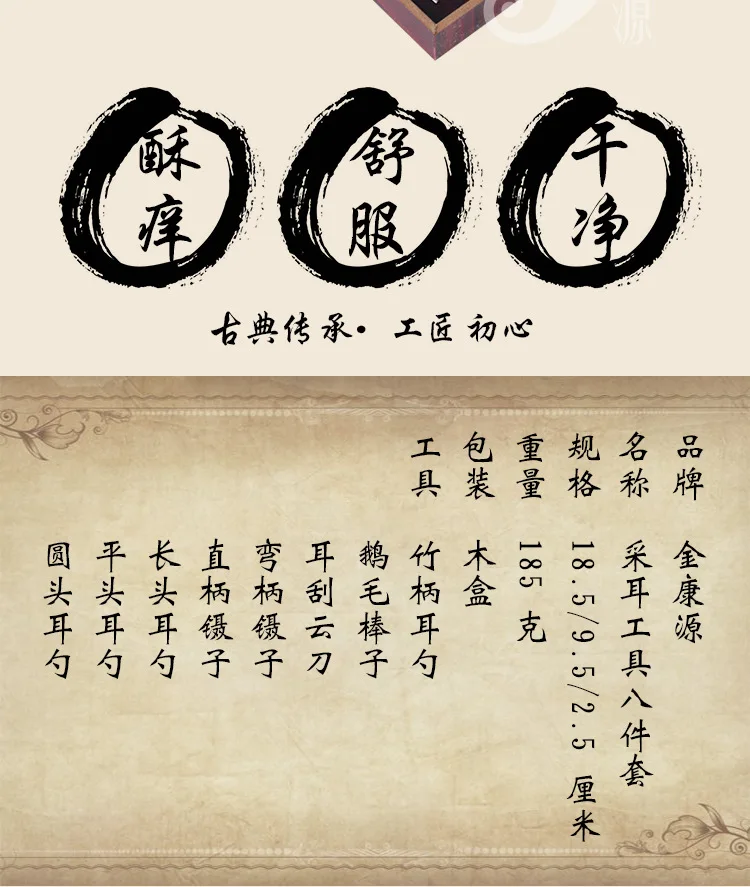 源
酥痒
舒服
干净
古典传承· 工匠初心
品牌 金康源
名称 采耳工具八件套
规格 18.5/9.5/2.5 厘米
重量 185 克
包装 木盒
工具 竹柄耳勺
鹅毛棒子
耳刮云刀
弯柄镊子
直柄镊子
长头耳勺
平头耳勺
圆头耳勺